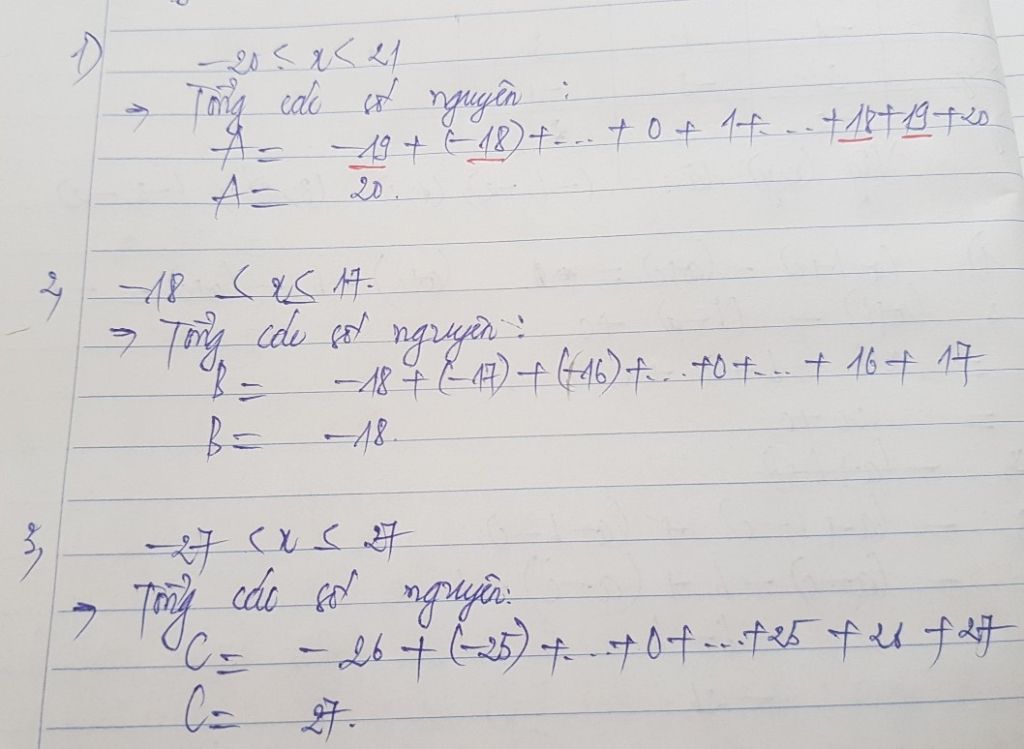 1) -20 < x < 21
→ Tổng các số nguyên :
A = -19 + (-18) + ... + 0 + 1 + ... + 18 + 19 + 20
A = 20.
2, -18 ≤ x ≤ 17.
→ Tổng các số nguyên :
B = -18 + (-17) + (-16) + ... + 0 + ... + 16 + 17
B = -18.
3, -27 < x ≤ 27
→ Tổng các số nguyên:
C = -26 + (-25) + ... + 0 + ... + 25 + 26 + 27
C = 27.